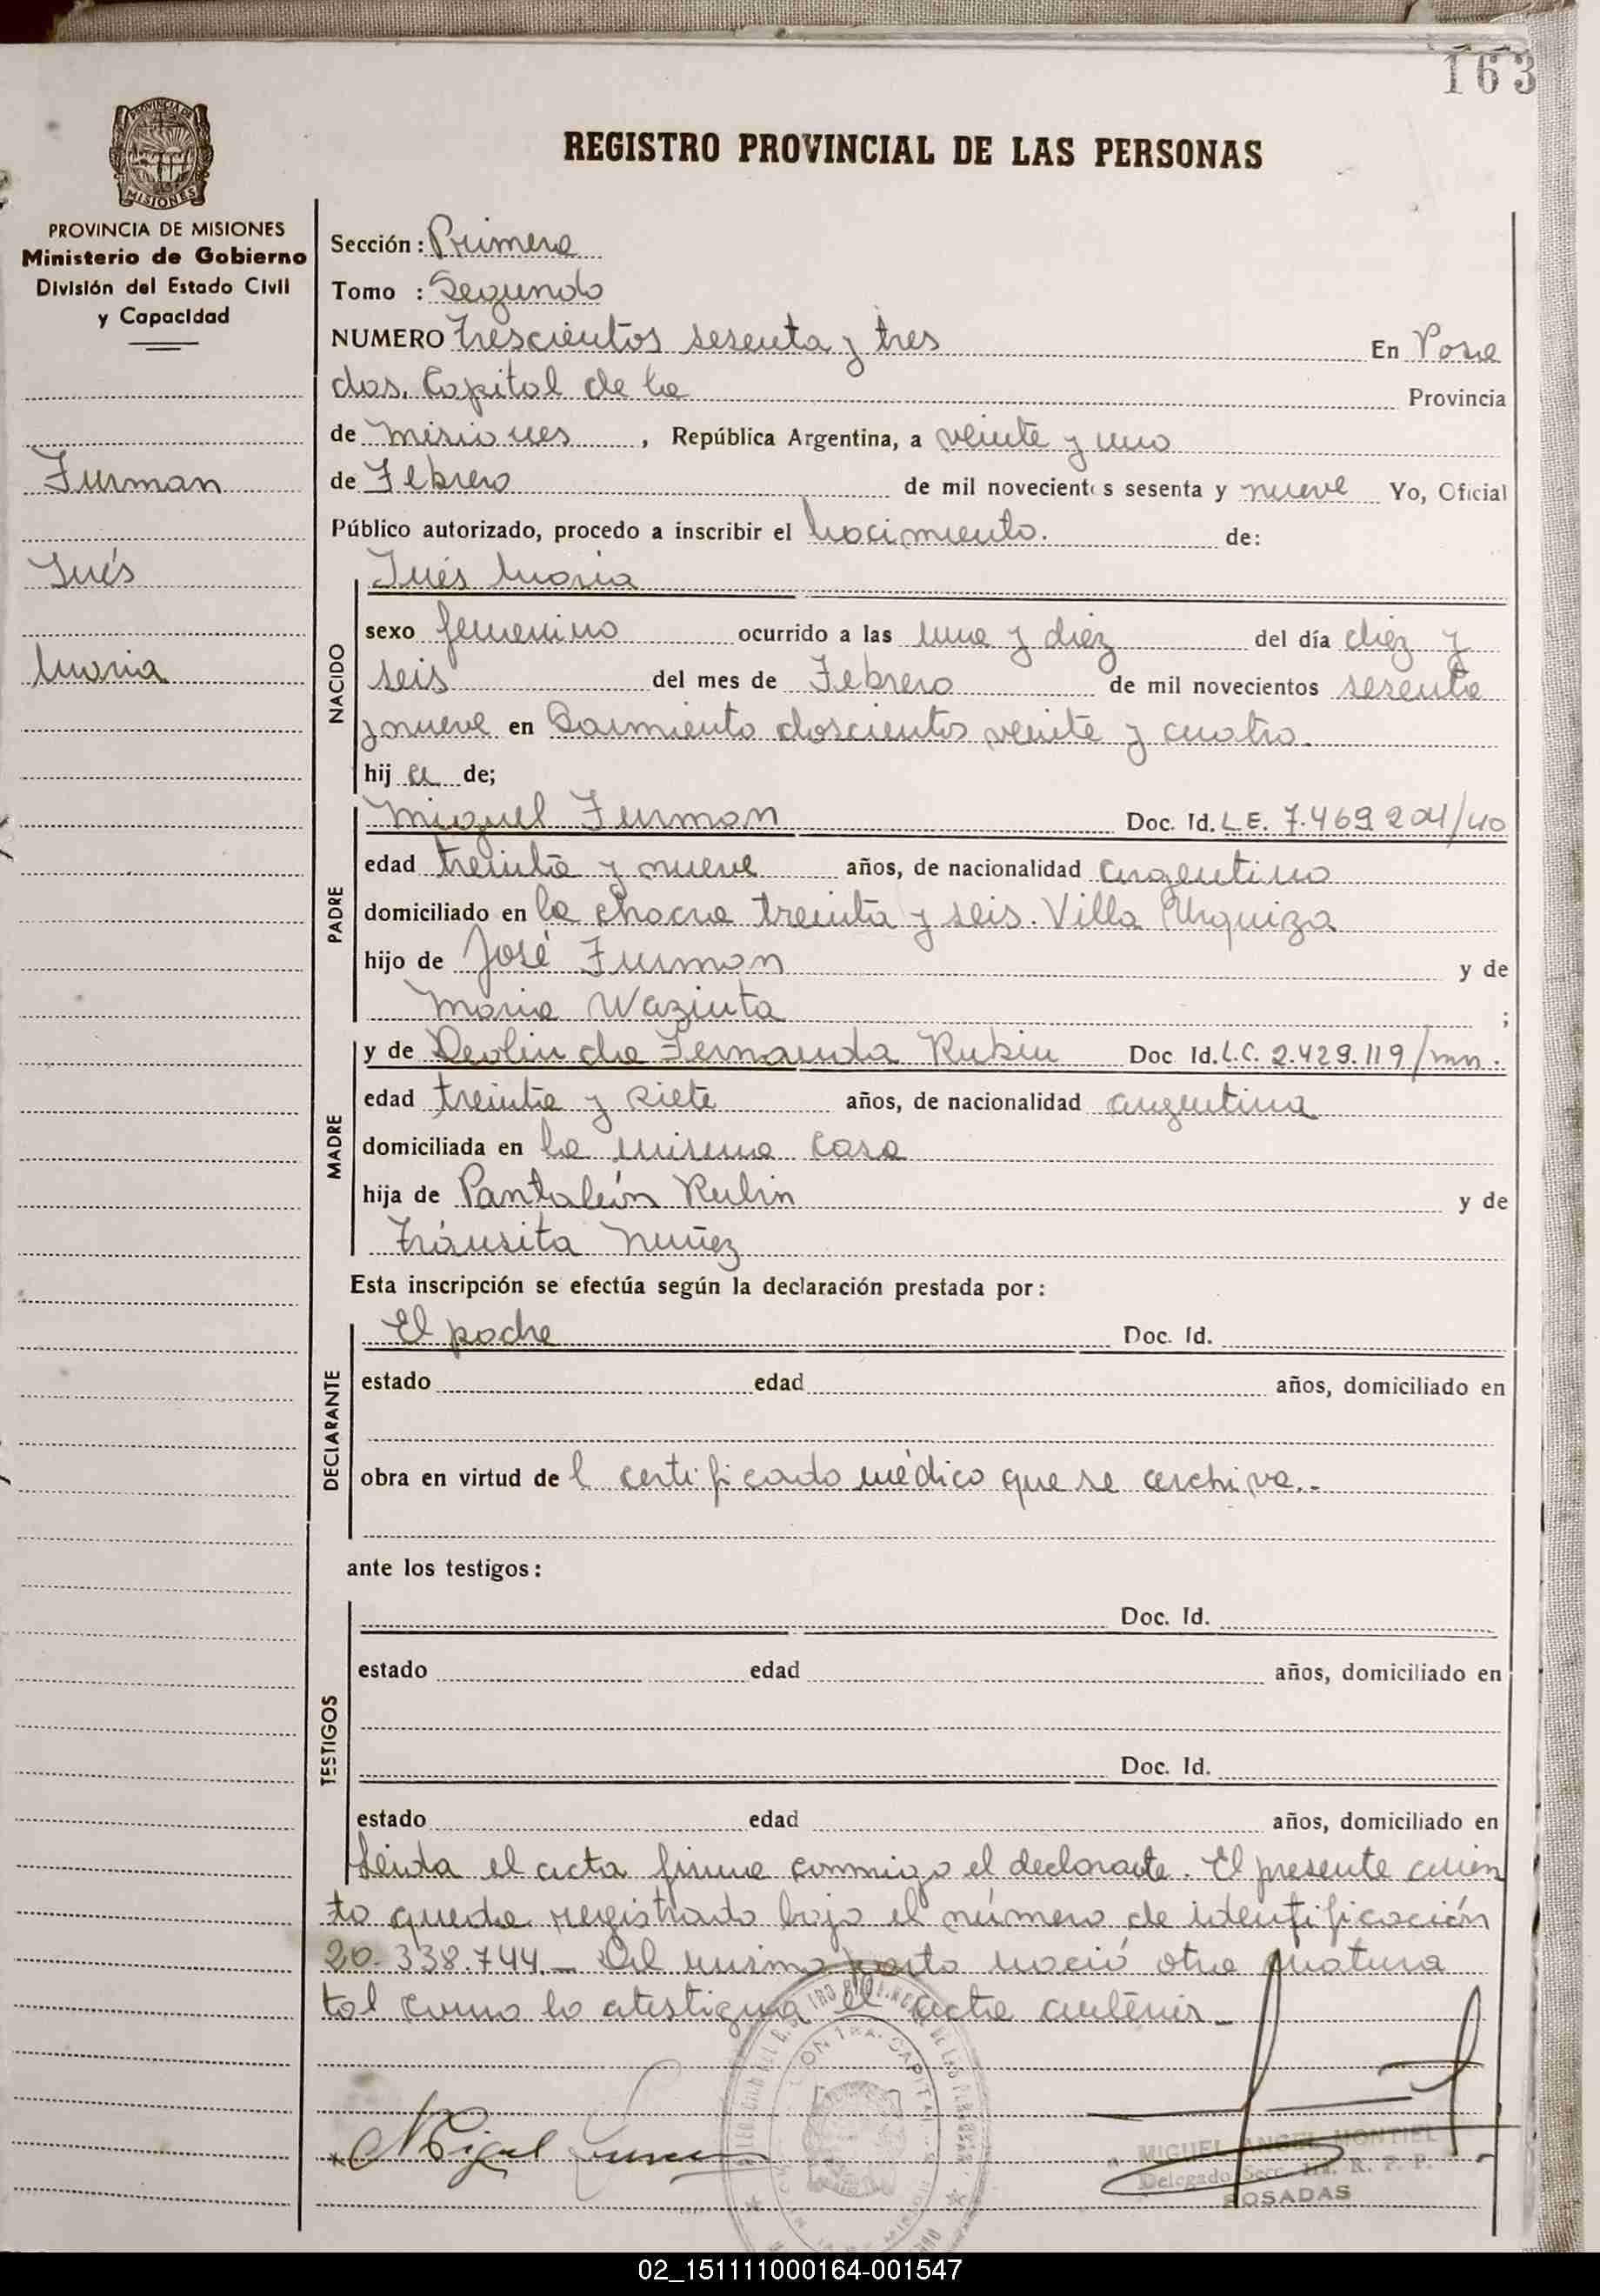 163
REGISTRO PROVINCIAL DE LAS PERSONAS
PROVINCIA DE MISIONES
Ministerio de Gobierno
División del Estado Civil
y Capacidad
Furman
Inés
María
Sección: Primera
Tomo : Segundo
NUMERO Trescientos sesenta y tres En Posa
das. Capital de la Provincia
de Misiones , República Argentina, a veinte y uno
de Febrero de mil novecientos sesenta y nueve Yo, Oficial
Público autorizado, procedo a inscribir el nacimiento. de:
NACIDO
Inés María
sexo femenino ocurrido a las una y diez del día diez y
seis del mes de Febrero de mil novecientos sesenta
y nueve en Sarmiento doscientos veinte y cuatro.
hij a de;
PADRE
Miguel Furman Doc. Id. L.E. 7.469.201/40
edad treinta y nueve años, de nacionalidad argentino
domiciliado en la chacra treinta y seis. Villa Urquiza
hijo de José Furman y de
María Waziuta ;
MADRE
y de Deolinda Fernanda Rubin Doc Id. L.C. 2.429.119/mn.
edad treinta y siete años, de nacionalidad argentina
domiciliada en la misma casa
hija de Pantaleón Rubin y de
Tránsita Nuñez
Esta inscripción se efectúa según la declaración prestada por:
DECLARANTE
El padre Doc. Id.
estado edad años, domiciliado en
obra en virtud de l certificado médico que se archiva.-
ante los testigos:
TESTIGOS
Doc. Id.
estado edad años, domiciliado en
Doc. Id.
estado edad años, domiciliado en
Leída el acta firma conmigo el declarante. El presente asien
to queda registrado bajo el número de identificación
20.338.744.- Del mismo parto nació otra criatura
tal como lo atestigua el acta anterior_
Miguel Furman
MIGUEL ANGEL MONTIEL
Delegado Secc. 1ra. R. P. P.
POSADAS
02_151111000164-001547